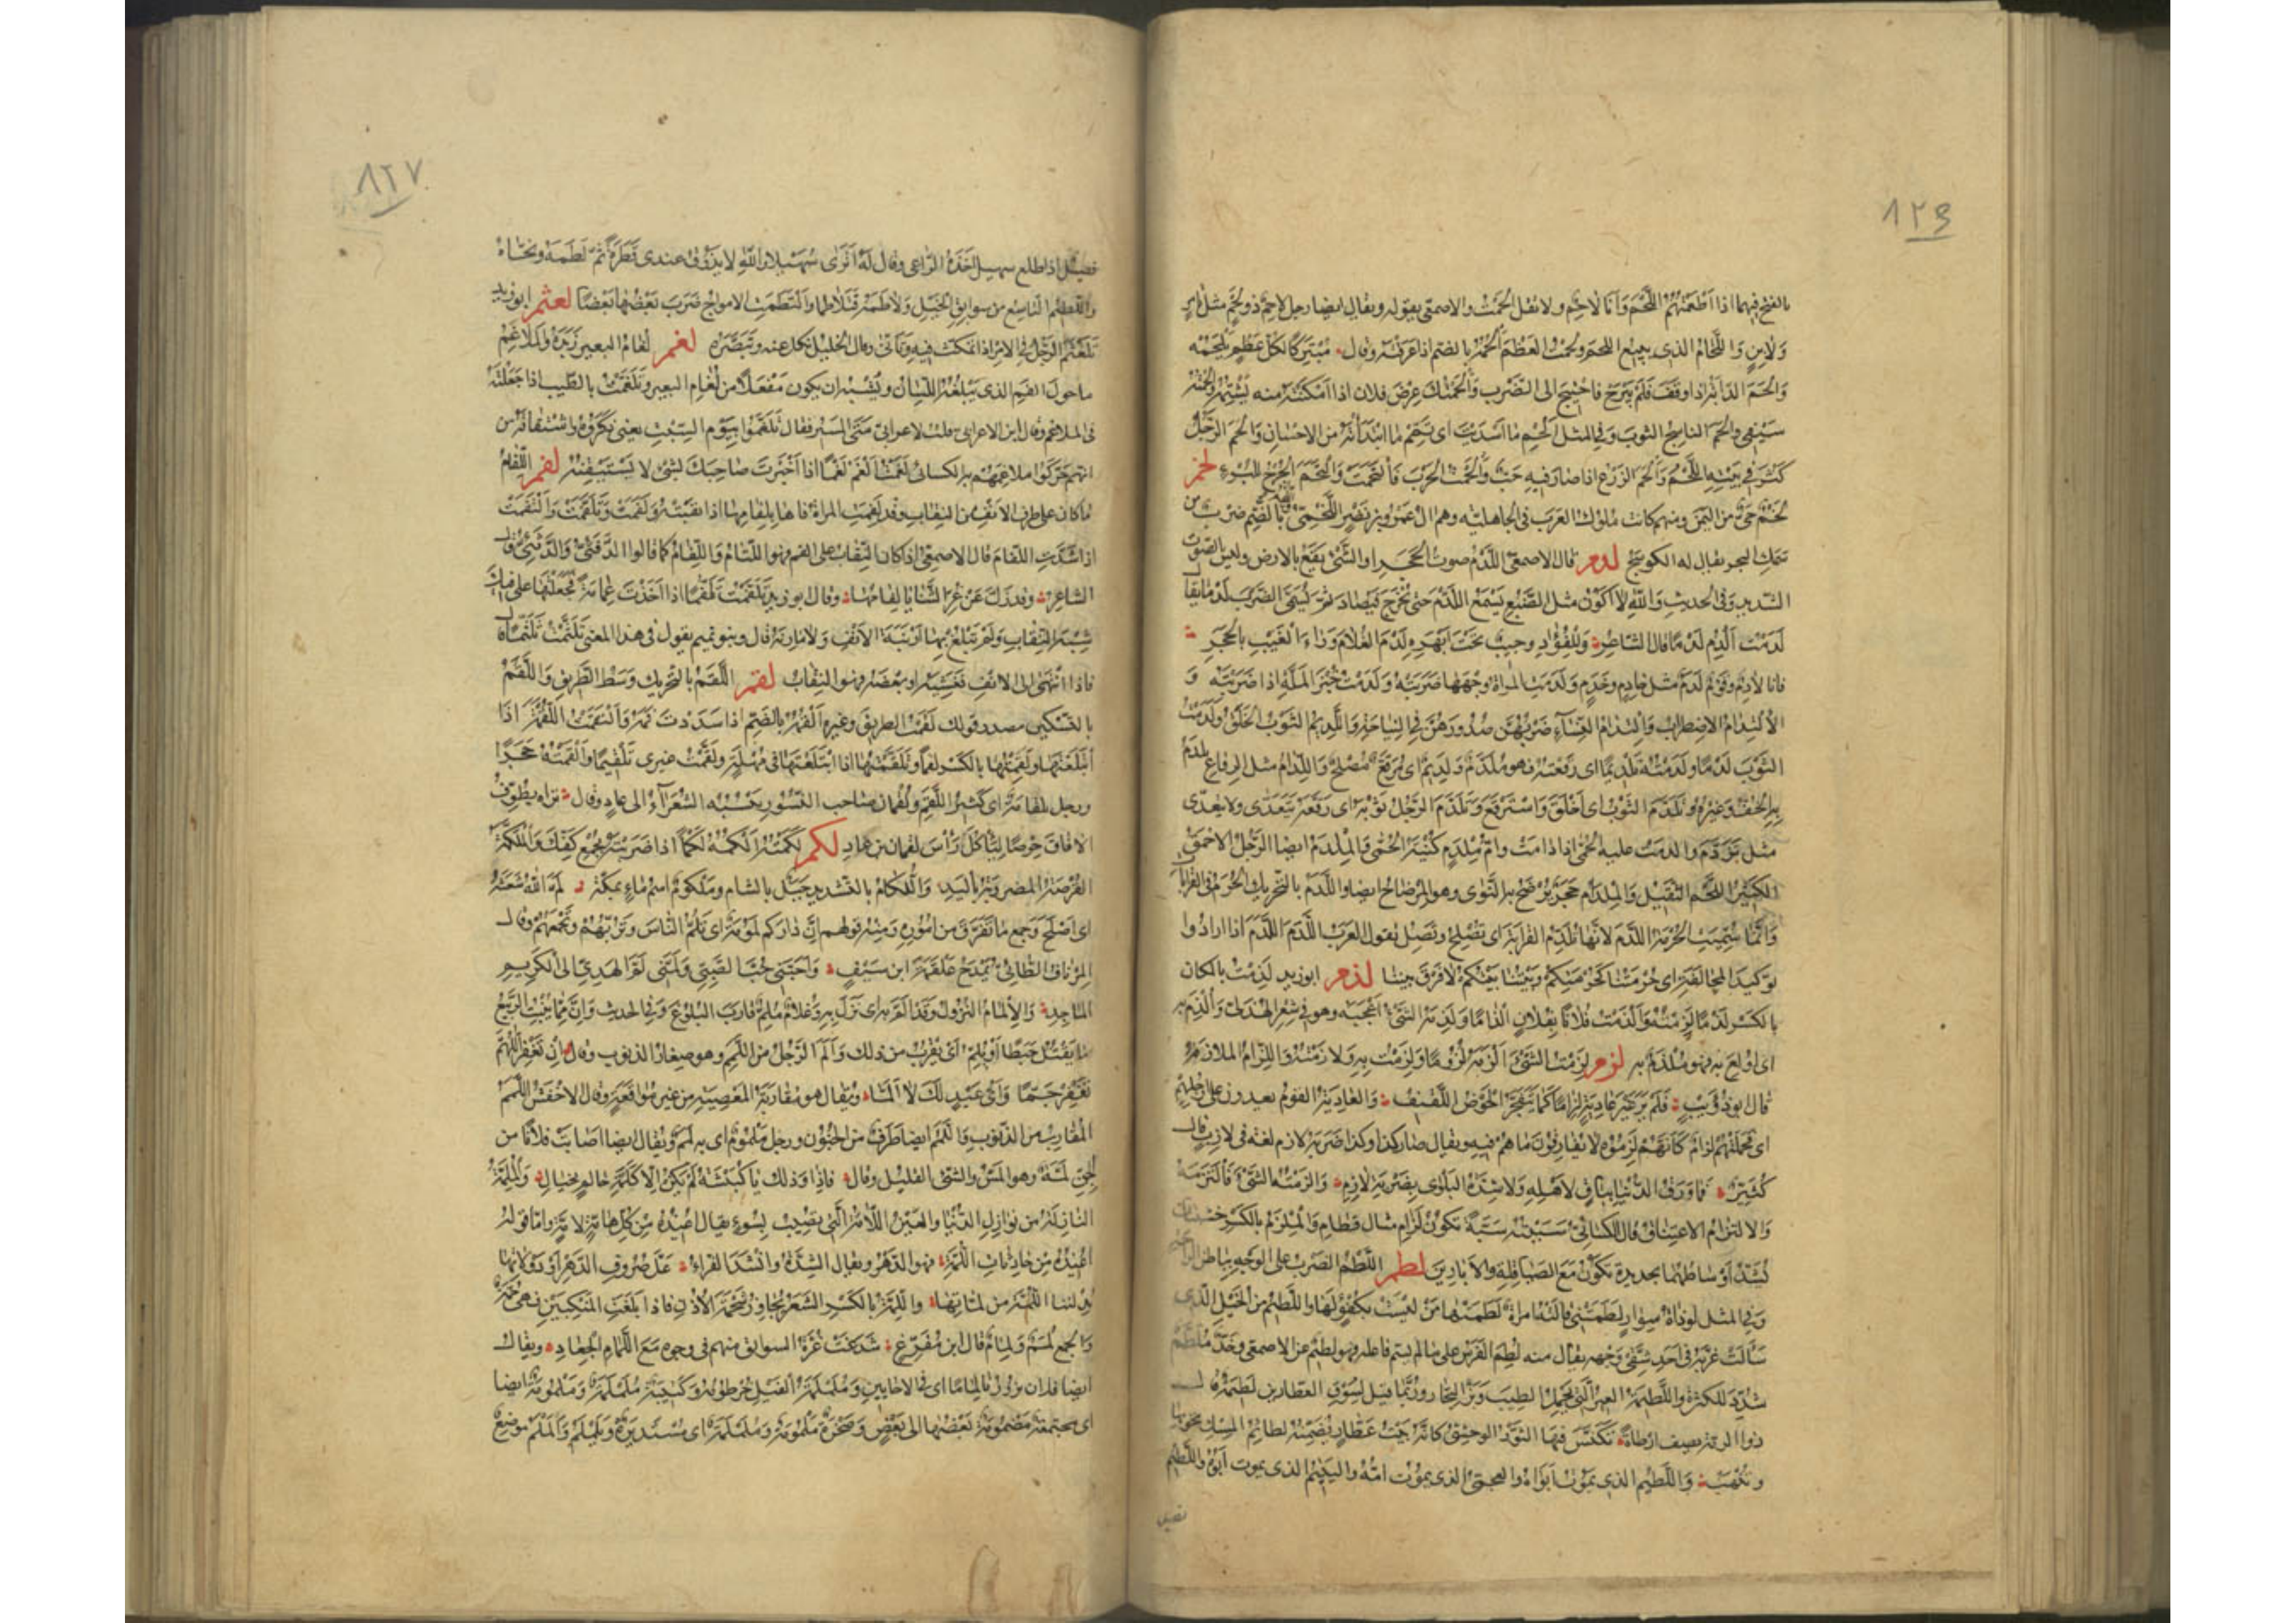 ١٢٣
بالفتح فيهما اذا اَطْعَمْتَهُمُ اللَّحْمَ وَاَنَا لَاحِمٌ ولا تقل اَلْحَمْتُ والاصمعى يقوله ويقال ايضا رجل لاحِمٌ ذو لحْمٍ مثل تامِرٍ
وَلَابِنٍ وَاللَّحَّامُ الذى يبيع اللحم ولحمْتُ العَظْمَ اَلْحُمُهُ بالضم اذا عَرَقْتَهُ وقال
وَاَلْحَمَ الدابَّةُ اذا وقف فلَمْ يَبْرَحْ فاحْتِيجَ الى الضَّرْبِ وَاَلْحَمْتُكَ عِرْضَ فلان اذا اَمْكَنْتَهُ منه يَشْتِمُهُ
والحَمَ الناسِجُ الثوبَ وفى المثل اَلْحِمْ ما اَسْدَيْتَ اى تَمِّمْ ما ابْتَدَأْتَهُ من الاحسانِ وَالحَمَ الرَّجُلُ
كَثُرَ فى بَيْتِهِ اللَّحْمُ وَاَلْحَمَ الزَّرْعُ اذا صار فيه حَبٌّ وَاَلْحَمْتُ الحَرْبَ فَالْتَحَمَتْ وَالْتَحَمَ الجُرْحُ للبُرْءِ لخم
لَخْمٌ حَىٌّ من اليَمَن ومنهم كانت مُلوك العَرَب فى الجاهليّه وهم آل عَمْرِو بنِ نَصْرٍ اللَّخْمِىِّ بالضَّمِّ ضرب من
سَمَكِ البحر يقال له الكوسَجُ لدم قال الاصمعىّ اللَّدْمُ صوتُ الحَجَرِ او الشَّىْءِ يَقَعُ بالارض وليس بالصوت
الشديد وفى الحديث وَاللهِ لا اكُونُ مثل الضَّبُعِ تَسْمَعُ اللَّدْمَ حتى تَخْرُجَ فَتُصَادَ ثم يُسَمَّى الضَّرْبُ لَدْمًا يقال
لَدَمْتُ اَلْدِمُ لَدْمًا قال الشاعِرُ وَلِلْفُؤَادِ وجِيبٌ تحْتَ اَبْهَرِهِ لَدْمَ الغُلَامِ وَرَاءَ الْغَيْبِ بالْحَجَرِ
فانا لادِمٌ وقَوْمٌ لَدَمٌ مثل خادِمٍ وخَدَمٍ ولَدَمَتِ المرأة وَجْهَهَا ضَرَبَتْهُ وَلَدَمْتُ خُبْزَ المَلَّةِ اذا ضَرَبْتَهُ وَ
الْاِلْتِدَامُ الاضطِرَابُ وَالْتِدَامُ النِّسَاءِ ضَرْبُهُنَّ صُدُورَهُنَّ فى النِّيَاحَةِ وَاللَّدِيمُ الثَّوْبُ الخَلَقُ ولَدَمْتُ
الثَّوْبَ لَدْمًا ولَدَّمْتُهُ تَلْدِيمًا اى رَقَعْتُهُ فهو مُلَدَّمٌ وَلَدِيمٌ اى مُرَقَّعٌ مُصْلَحٌ وَاللِّدَامُ مثل الرِّقَاعِ يُلْدَمُ
به الخُفُّ وغيْرُهُ وتَلَدَّمَ الثَّوْبُ اى اَخْلَقَ وَاسْتَرْقَعَ وَتَلَدَّمَ الرَّجُلُ ثَوْبَهُ اى رَقَعَهُ يَتَعَدَّى ولا يتعَدّى
مثل تَرَدَّمَ والدمَتْ عليه الحُمَّى اذا دامَتْ وامُّ مِلْدَمٍ كُنْيَةُ الحُمَّى وَالمِلْدَمُ ايضا الرَّجُلُ الاحْمَقُ
الكثيرُ اللَّحْمِ الثَّقِيلُ وَالمِلْدَمُ حَجَرٌ يُرْضَخُ به النَّوَى وهو المِرْضَاخُ ايضا واللَّدَمُ بالتحْرِيكِ الحُرَمُ فى القَرَابَاتِ
وَاِنَّمَا سُمِّيَتِ الحُرْمَةُ اللَّدَمَ لاَنَّهَا تَلْدِمُ القَرَابَةَ اى تُصْلِحُ وتَصِلُ تقول العَرَبُ اللَّدَمُ اللَّدَمُ اذا ارادُوا
توكيد المحالفَةِ اى حُرْمَتُنَا حُرْمَتُكُمْ وبَيْتُنَا بَيْتُكُمْ لا فَرْقَ بيننا لذم ابو زيد لَذِمْتُ بالمكان
بالكَسْر لَذْمًا لَزِمْتُهُ وَاَلْذَمْتُ فُلَانًا بِفُلانٍ اِلْذَامًا وَلَذِمَهُ الشَّىْءُ اَعْجَبَهُ وهو فى شِعْرِ الهُذَلىِّ وَاُلْذِمَ به
اى اُولِعَ به فهو مُلْذَمٌ به لزم لَزِمْتُ الشَّىْءَ اَلْزَمُهُ لُزُومًا وَلَزِمْتُ به وَلازَمْتُهُ وَاللِّزَامُ المُلازِمُ
قال ابو ذُؤَيْبٍ فَلَمْ يَرَ غَيْرَ عادِيَةٍ لِزَامًا كَمَا يَتَفَجَّرُ الحَوْضُ اللَّقِيفُ وَالعادِيَةُ القومُ يعدون على ارجلهم
اى فحَمْلَتُهُمْ لِزَامٌ كَاَنَّهُمْ لَزِمُوهُ لا يُفَارِقُونَ مَا هُمْ فيه ويقال صار كذا وكذا ضَرْبَةَ لازِمٍ لغة فى لازِبٍ قال
كُثَيِّرٌ فَمَا وَرَقُ الدُّنْيَا بِبَاقٍ لاَهْلِهِ وَلا شِدَّةُ البَلْوَى بِضَرْبَةِ لازِمِ وَالزَمْتُهُ الشَّىْءَ فَالْتَزَمَهُ
وَالالتِزَامُ الاعتِنَاقُ قال الكسائىّ سَبَبْتُهُ سَبَّةً تكونُ لَزَامِ مثال قَطَامِ وَالمِلْزَمُ بالكَسْرِ خشبتان
تُشَدُّ اَوْسَاطُهُمَا بحديدة تكُونُ مَعَ الصَّيَاقِلَةِ والاَبَّارِينَ لطم اللَّطْمُ الضَّرْبُ على الوَجْهِ بباطن الراحة
وفى المثل لو ذاتُ سِوَارٍ لَطَمَتْنِى قالَتْهُ امرأة لَطَمَتْهَا مَنْ لَيْسَتْ بكُفُؤٍ لَهَا واللَّطِيمُ من الخَيْلِ الَّذِى
سَالَتْ غُرَّتُهُ فى اَحَدِ شِقَّىْ وَجْهِهِ يقال منه لُطِمَ الفَرَسُ على مَا لم يُسَمَّ فاعله فهو لَطِيمٌ عن الاصمعى وخَدٌّ مُلَطَّمٌ
شُدِّدَ للكَثْرَةِ واللَّطِيمَةُ العِيرُ الَّتِى تحْمِلُ الطِّيبَ وَبَزَّ التِّجَارِ ورُبَّمَا قيل لِسُوقِ العطّارين لَطِيمَةٌ قال
ذو الرمّة يصف اَرْطَاةً تكَنَّسَ فيهَا الثَّوْرُ الوحْشِىُّ كاَنَّهَا بَيْتُ عَطَّارٍ يُضَمِّنُهُ لَطَائِمَ المِسْكِ يَحْوِيهَا
وتُنْتَهَبُ وَاللَّطِيمُ الذى يَمُوتُ اَبَوَاهُ والعجِىُّ الذى يموت امّهُ واليَتِيمُ الذى يموت ابُوهُ واللَّطِيمُ
فصيل
٨٢٧
فصيل اذا طلع سهيل اَخَذَهُ الراعى وقال لَهُ اَتَرَى سُهَيْلا والله لا تَذُوقُ عندى قَطْرَةً ثُمَّ لَطَمَهُ ونَحَّاهُ
واللَّطِيمُ التّاسِعُ من سوابِقِ الخَيْلِ وَلاَطَمَهُ فَتَلاطَمَا وَالْتَطَمَتِ الامواجُ ضَرَبَ بَعْضُهَا بَعْضًا لعثم ابو زيد
تَلَعْثَمَ الرَّجُلُ فى الامْرِ اذا تمَكَّثَ فيه وتَاَنَّى وقال الخَليل نكَلَ عنه وتَبَصَّرَهُ لغم لُغَامُ البعير زَبَدُهُ وَالمَلاغِمُ
ما حَولَ الفم الذى يَبْلُغُهُ اللِّسَانُ ويُشْبِهُ ان يكون مَفْعَلًا من لُغَامِ البعير وتَلَغَّمْتُ بالطِّيبِ اذا جَعَلْتَهُ
فى المَلاغِمِ وقال ابن الاعرابى قلت لاعرابىّ مَتَى المَسِيرُ فقال تَلَغَّمُوا بِيَوْمِ السَّبْتِ يعنى ذَكَرُوهُ واشْتِقَاقُهُ من
انهم حَرَّكُوا مَلاغِمَهُمْ به الكسائى لَغَمْتُ اَلْغَمُ لَغْمًا اذا اَخْبَرْتَ صَاحِبَكَ بشَىْءٍ لا يَسْتَيْقِنُهُ لفم اللِّفَامُ
مَا كان على طرف الانف من النقاب وقد لَفَمَتِ المرأة فَاهَا بِلِفَامِهَا اذا نَقَبَتْهُ وَلَفَمَتْ وَتَلَفَّمَتْ وَالْتَفَمَتْ
اذا شَدَّتِ اللِّفَامَ قال الاصمعىّ اذا كان النِّقَابُ على الفم فهو اللِّثَامُ وَاللِّفَامُ كما قالوا الدَّفَئِىُّ وَالدَّثَئِىُّ قال
الشاعر وقال ابو زيد تَلَفَّمْتُ تَلَفُّمًا اذا اَخَذْتَ عِمَامَةً فَجَعَلْتَهَا على فيكَ
شِبْهَ النِّقَابِ ولَمْ تَبْلُغْ بهَا اَرْنَبَةَ الاَنْفِ وَلا مَارِنَهُ قال وبنو تميم يقول فى هذا المعنى تَلَثَّمْتُ تَلَثُّمًا قال
فاذا انْتَهَى الى الانف فَغَشِيَهُ او بَعْضَهُ فهو النِّقَابُ لقم اللَّقَمُ بالتحريك وَسَطُ الطَّرِيقِ وَاللَّقْمُ
بالتسكين مصدر قولك لَقَمْتُ الطريقَ وغيره اَلْقُمُهُ بالضَّمِّ اذا سَدَدْتَ فَمَهُ وَالْتَقَمْتُ اللُّقْمَةَ اذا
ابْتَلَعْتَهَا ولَقِمْتُهَا بالكَسْرِ لَقْمًا وتَلَقَّمْتُهَا اذا ابْتَلَعْتَهَا فى مُهْلَةٍ ولَقَّمْتُ غيرى تَلْقِيمًا وَاَلْقَمْتُهُ حَجَرًا
ورجل تِلْقَامَةٌ اى كَبِيرُ اللُّقَمِ ولُقْمَانُ صاحب النُّسُورِ يَنْسُبُهُ الشُّعَرَاءُ الى عادٍ وقال تراه يُطَوِّفُ
الآفَاقَ حِرْصًا لِيَأْكُلَ رَأْسَ لُقْمَانَ بنِ عادِ لكم لَكَمْتُهُ اَلْكُمُهُ لَكْمًا اذا ضَرَبْتَهُ بجُمْعِ كَفِّكَ وَالمُلَكَّمَةُ
القُرْصَةُ المضروبَةُ باليَدِ وَاللُّكَّامُ بالتشديد جَبَلٌ بالشام ومَلْكُومٌ اسم ماءٍ بمكّة لَمَّ اللهُ شَعَثَهُ
اى اَصْلَحَ وَجَمَعَ مَا تَفَرَّقَ من اُمُورِهِ وَمِنْهُ قولهم اِنَّ دَارَكُمْ لَمُومَةٌ اى تَلُمُّ النَّاسَ وتَرُبُّهُمْ وتَجْمَعُهُمْ قال
المِرْنَافُ الطَّائِىُّ يَمْدَحُ عَلْقَمَةَ ابن سَيْفٍ وَاَحَبَّنِى حُبَّ الصَّبِىِّ وَلَمَّنِى لَمَّ الهَدِىِّ الى الكَرِيمِ
المَاجِدِ وَالاِلْمَامُ النُّزُولُ وقد اَلَمَّ به اى نَزَلَ به وغُلامٌ مُلِمٌّ قارَبَ البُلُوغَ وفى الحديث وَاِنَّ مِمَّا يُنْبِتُ الرَّبِيعُ
مَا يَقْتُلُ حَبَطًا اَوْ يُلِمُّ اى يَقْرُبُ من ذلك وَاَلَمَّ الرَّجُلُ من اللَّمَمِ وهو صِغَارُ الذنوب وقال اِنْ تَغْفِرِ اللَّهُمَّ
تَغْفِرْ جَمَّا وَاَىُّ عَبْدٍ لَكَ لا اَلَمَّا ويقال هو مُقَارَبَةُ المَعْصِيَةِ من غير مُوَاقَعَةٍ وقال الاَخْفَشُ اللَّمَمُ
المُقَارَبُ من الذنوب وَاللَّمَمُ ايضا طَرَفٌ من الجُنُون ورجل مَلْمُومٌ اى به لَمَمٌ ويقال ايضا اصَابَتْ فُلانًا من
الجِنِّ لَمَّةٌ وهو المَسُّ والشىْءُ القليل وقال فاِذَا وَذلك يَا كُبَيْشَةُ لَمْ يَكُنْ اِلَّا كَلَمَّةِ حَالِمٍ بِخَيَالِ وَالْمُلِمَّةُ
النازِلَةُ من نَوَازِلِ الدُّنْيَا والعَيْنُ اللّامَّةُ الَّتِى تُصِيبُ بِسُوءٍ يقال اُعِيذُهُ مِنْ كُلِّ هَامَّةٍ وَلامَّةٍ وامّا قوله
اُعِيذُهُ مِنْ حَادِثَاتِ اللَّمَّةِ فهو الدَّهْرُ ويقال الشِّدَّةُ وانْشَدَ الفَرَّاءُ عَلَّ صُرُوفَ الدَّهْرِ اَوْ دُولاتِهَا
يُدِلْنَنَا اللَّمَّةَ من لَمَّاتِهَا واللِّمَّةُ بالكَسْرِ الشَّعَرُ يُجَاوِزُ شَحْمَةَ الاُذُنِ فاذا بَلَغَتِ المَنْكِبَيْنِ فهى جُمَّةٌ
وَالجمع لِمَمٌ وَلِمَامٌ قال ابن مُفَرِّغٍ شَدَخَتْ غُرَّةُ السوابق منهم فى وجوهٍ مَعَ اللِّمَامِ الجِعَادِ ويقال
ايضا فلان يزورنا لِمَامًا اى فى الاحايِينِ ومُلَمْلَمَةُ الفيل خُرْطُومُهُ وكَتِيبَةٌ مُلَمْلَمَةٌ وَمَلْمُومَةٌ ايضا
اى مجتمعة مَضْمُومَةٌ بَعْضُهَا الى بَعْضٍ وصَخْرَةٌ مَلْمُومَةٌ ومُلَمْلَمَةٌ اى مُسْتَدِيرَةٌ ويَلَمْلَمُ وَاَلَمْلَمُ موضع